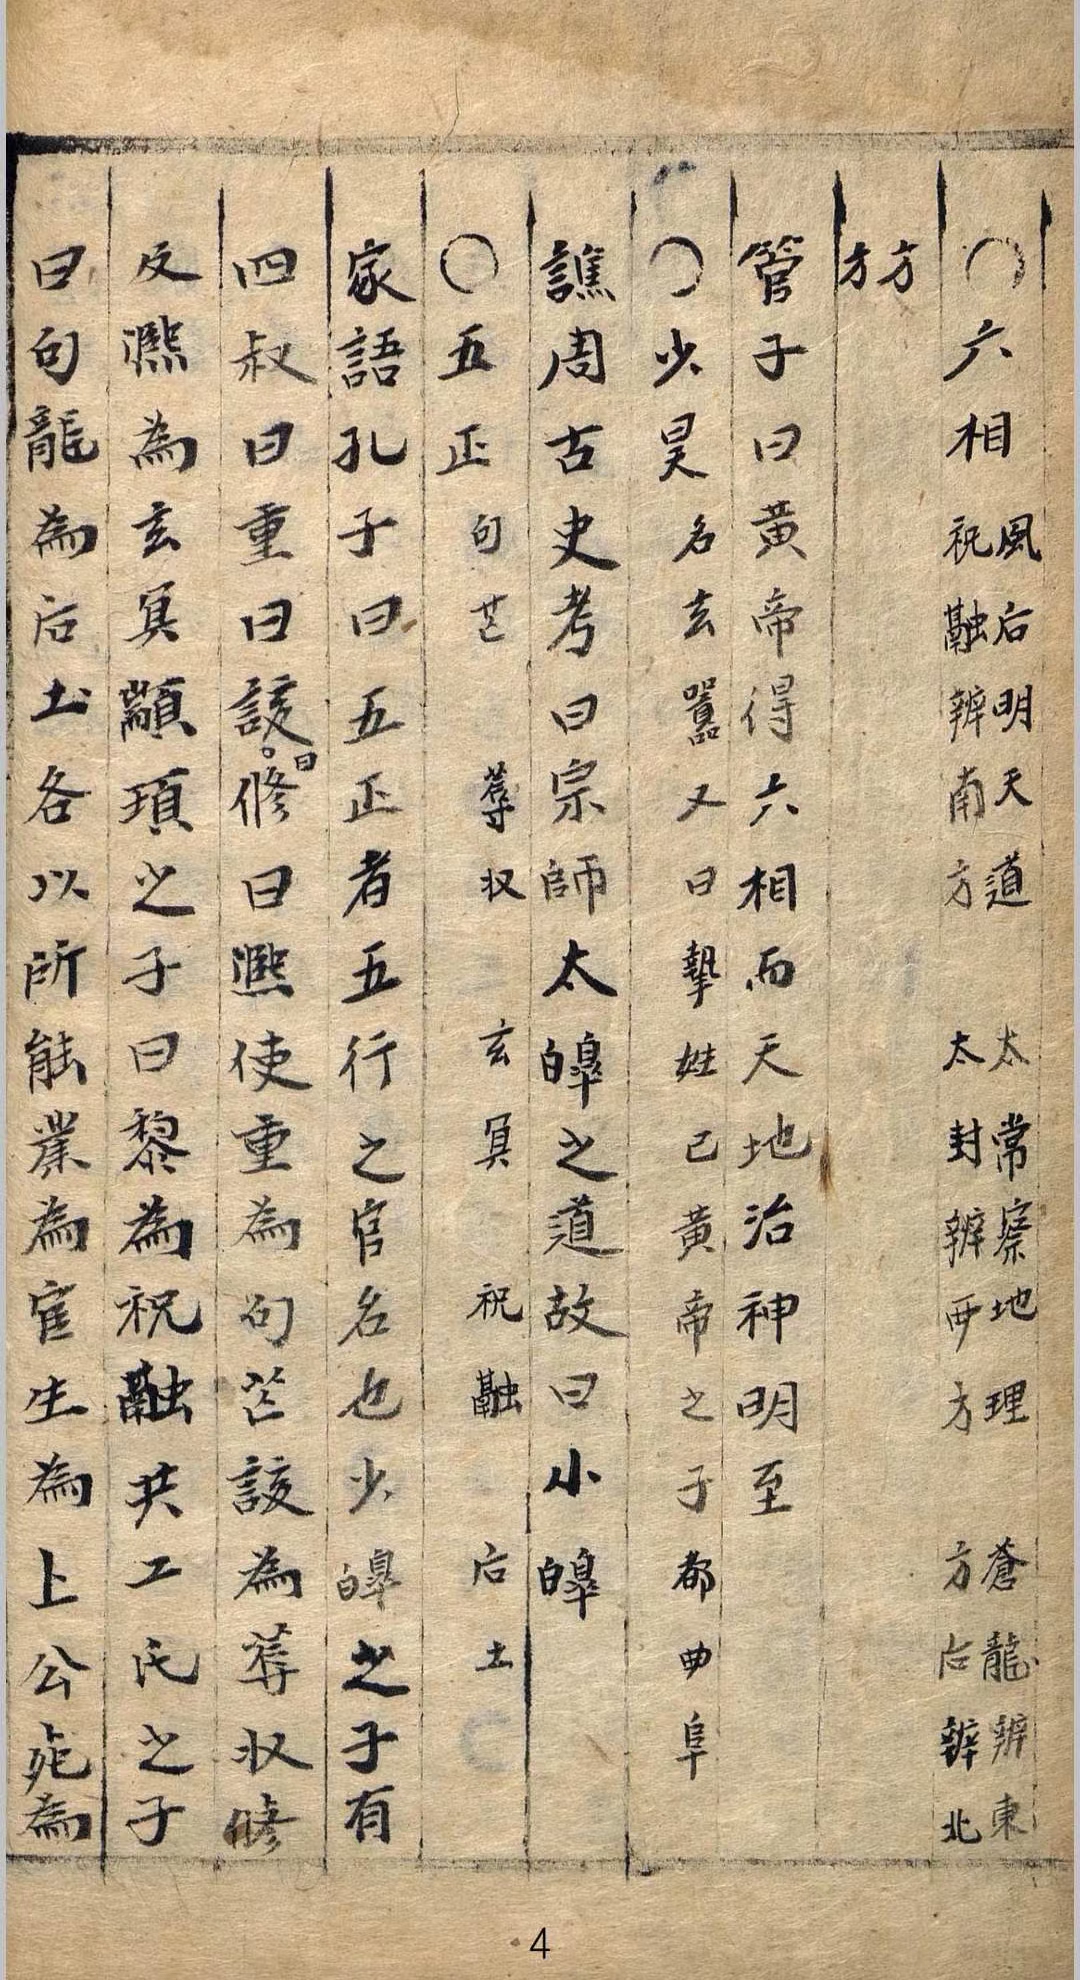 ○六相 風后明天道 太常察地理 蒼龍辨東
祝融辨南方 太封辨西方 后辨北
方方
管子曰黃帝得六相而天地治神明至
○少昊 名玄囂又曰摯姓己黃帝之子都曲阜
譙周古史考曰宗師太皞之道故曰小皞
○五正 句芒 蓐収 玄冥 祝融 后土
家語孔子曰五正者五行之官名也少皞之子有
四叔曰重曰該曰修曰熈使重為句芒該為蓐収修
及熈為玄冥顓頊之子曰黎為祝融共工氏之子
曰句龍為后土各以所能業為官生為上公死為
4